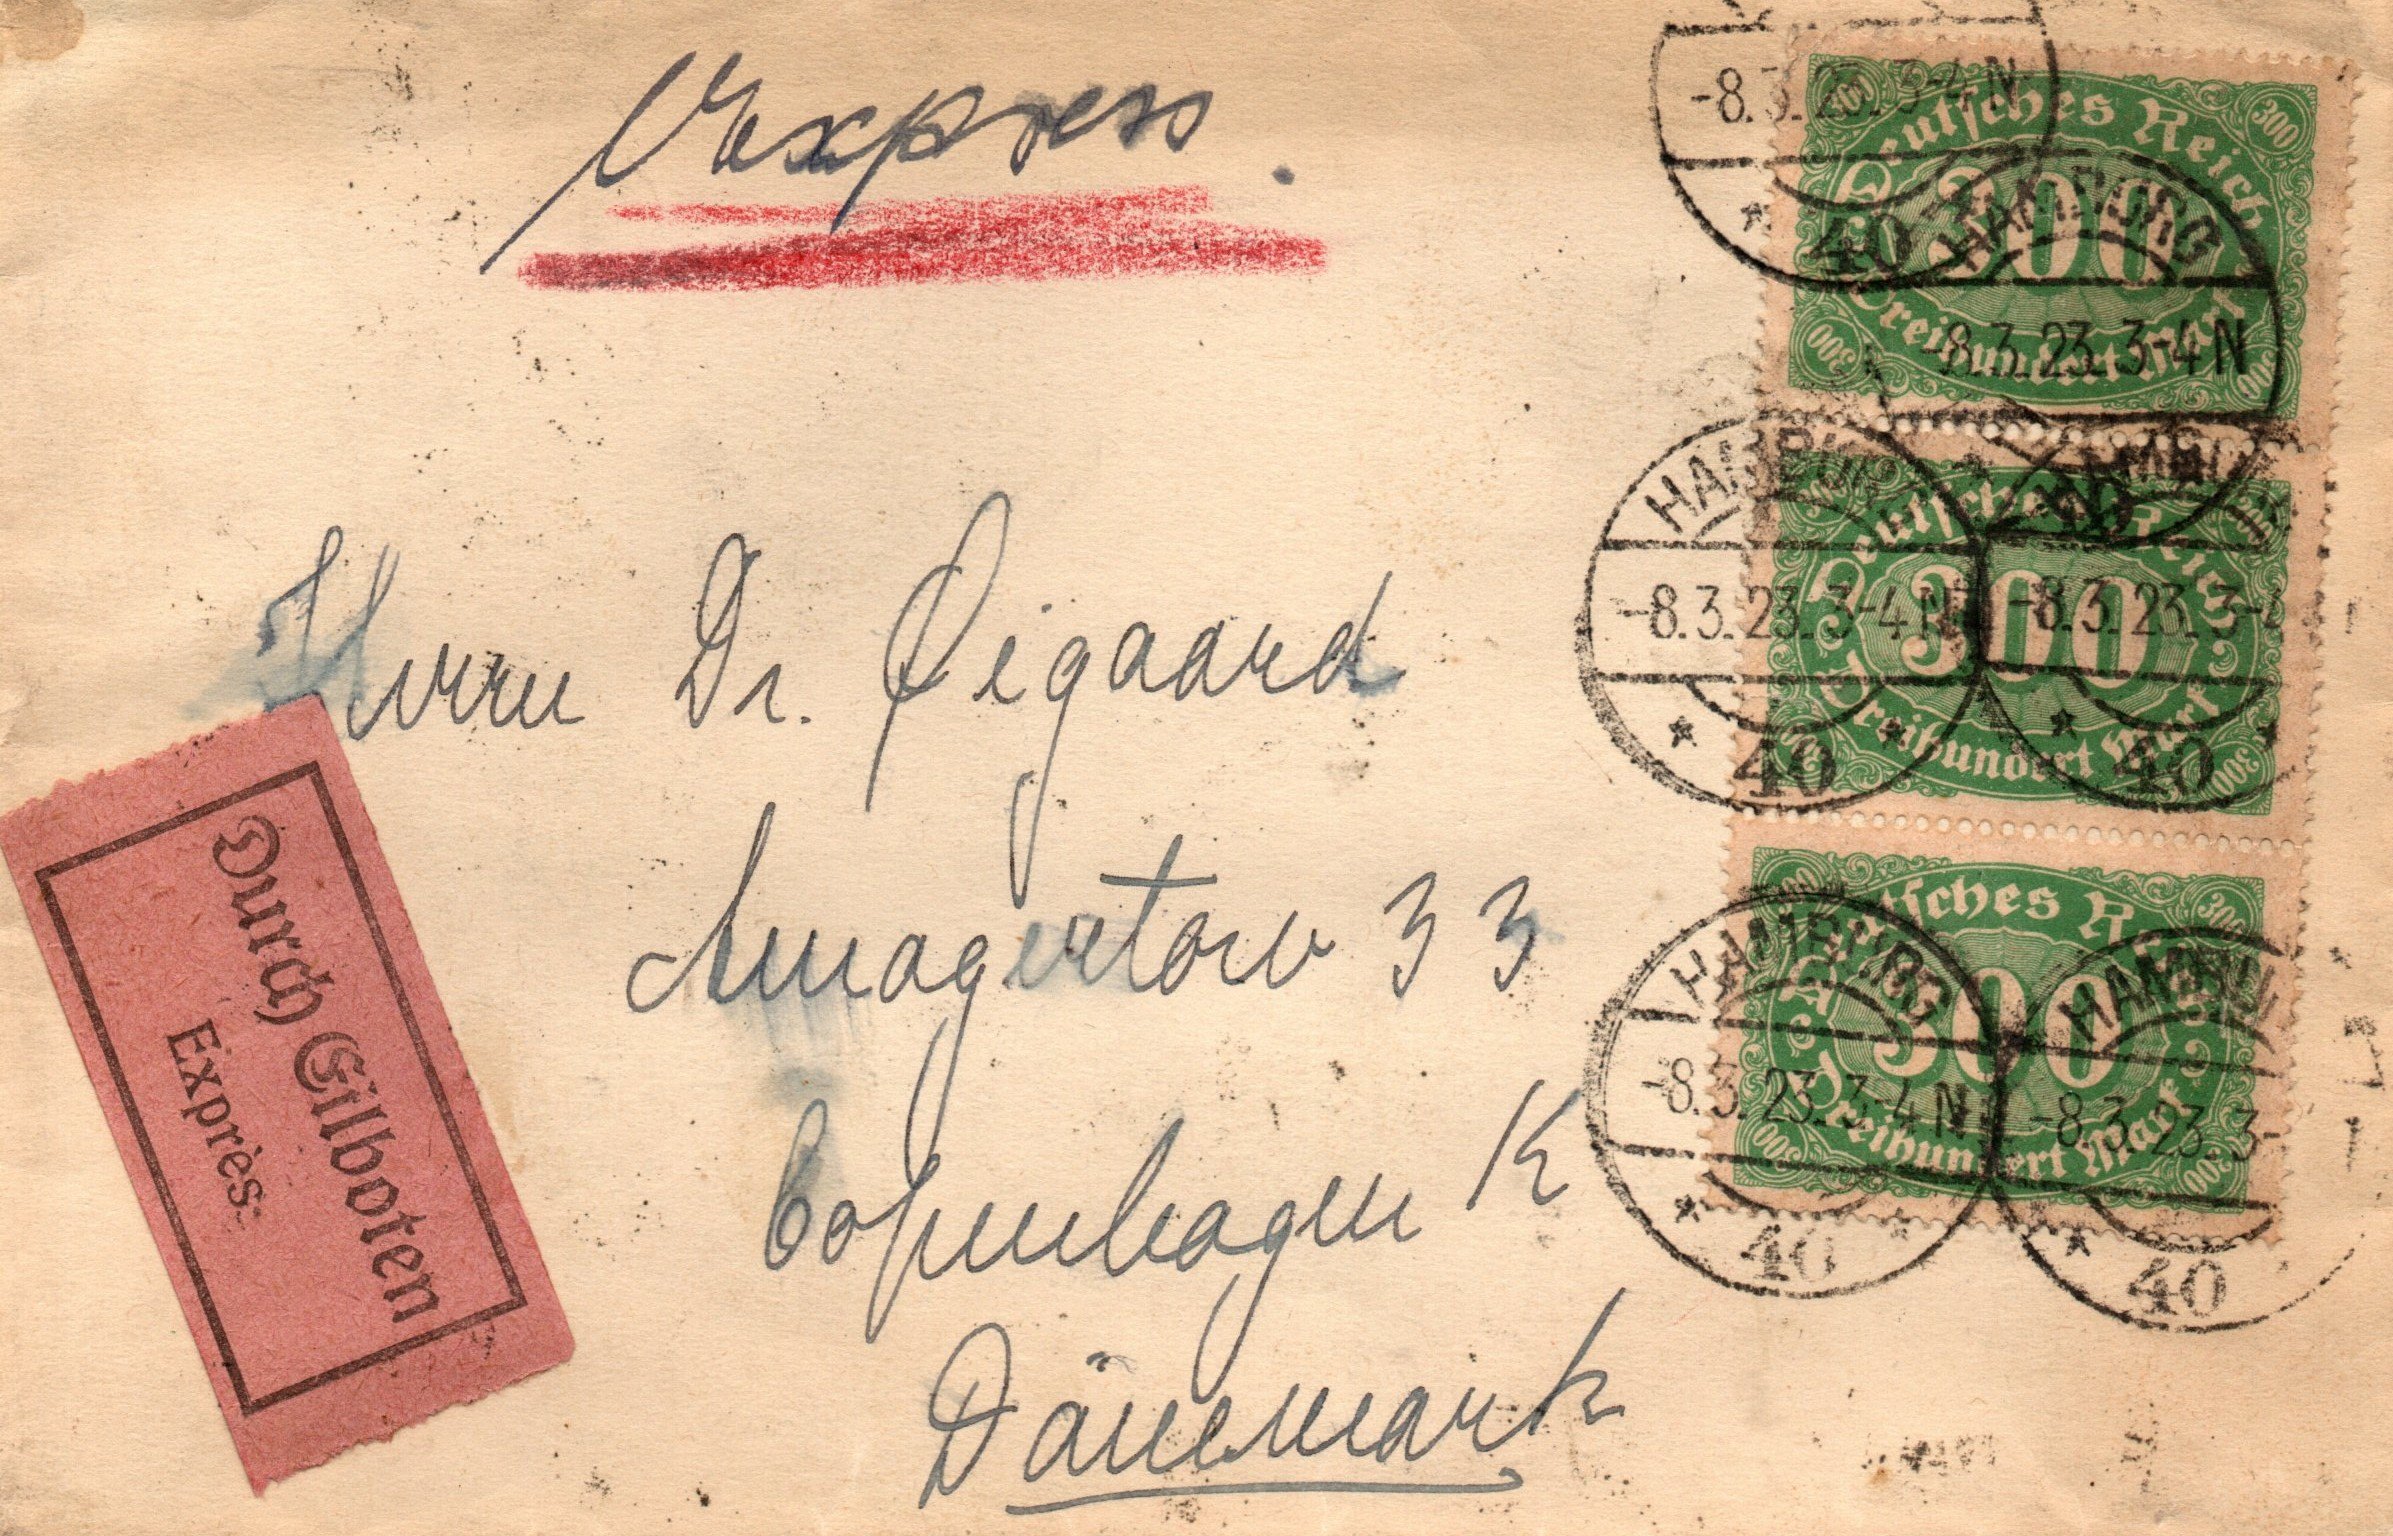 Express.
Herrn Dr. Øigaard
Amagertorv 33
Copenhagen K
Dänemark
Durch Eilboten
Exprès.
Deutsches Reich
300
Dreihundert Mark
Deutsches Reich
300
Dreihundert Mark
Deutsches Reich
300
Dreihundert Mark
-8.3.23.3-4N
* 40
HAMBURG
-8.3.23.3-4N
40
HAMBURG
-8.3.23.3-4N
* 40 *
HAMBU
-8.3.23.3-4
* 40 *
HAMBURG
-8.3.23.3-4N
* 40 *
HAMBU
-8.3.23.3-
* 40